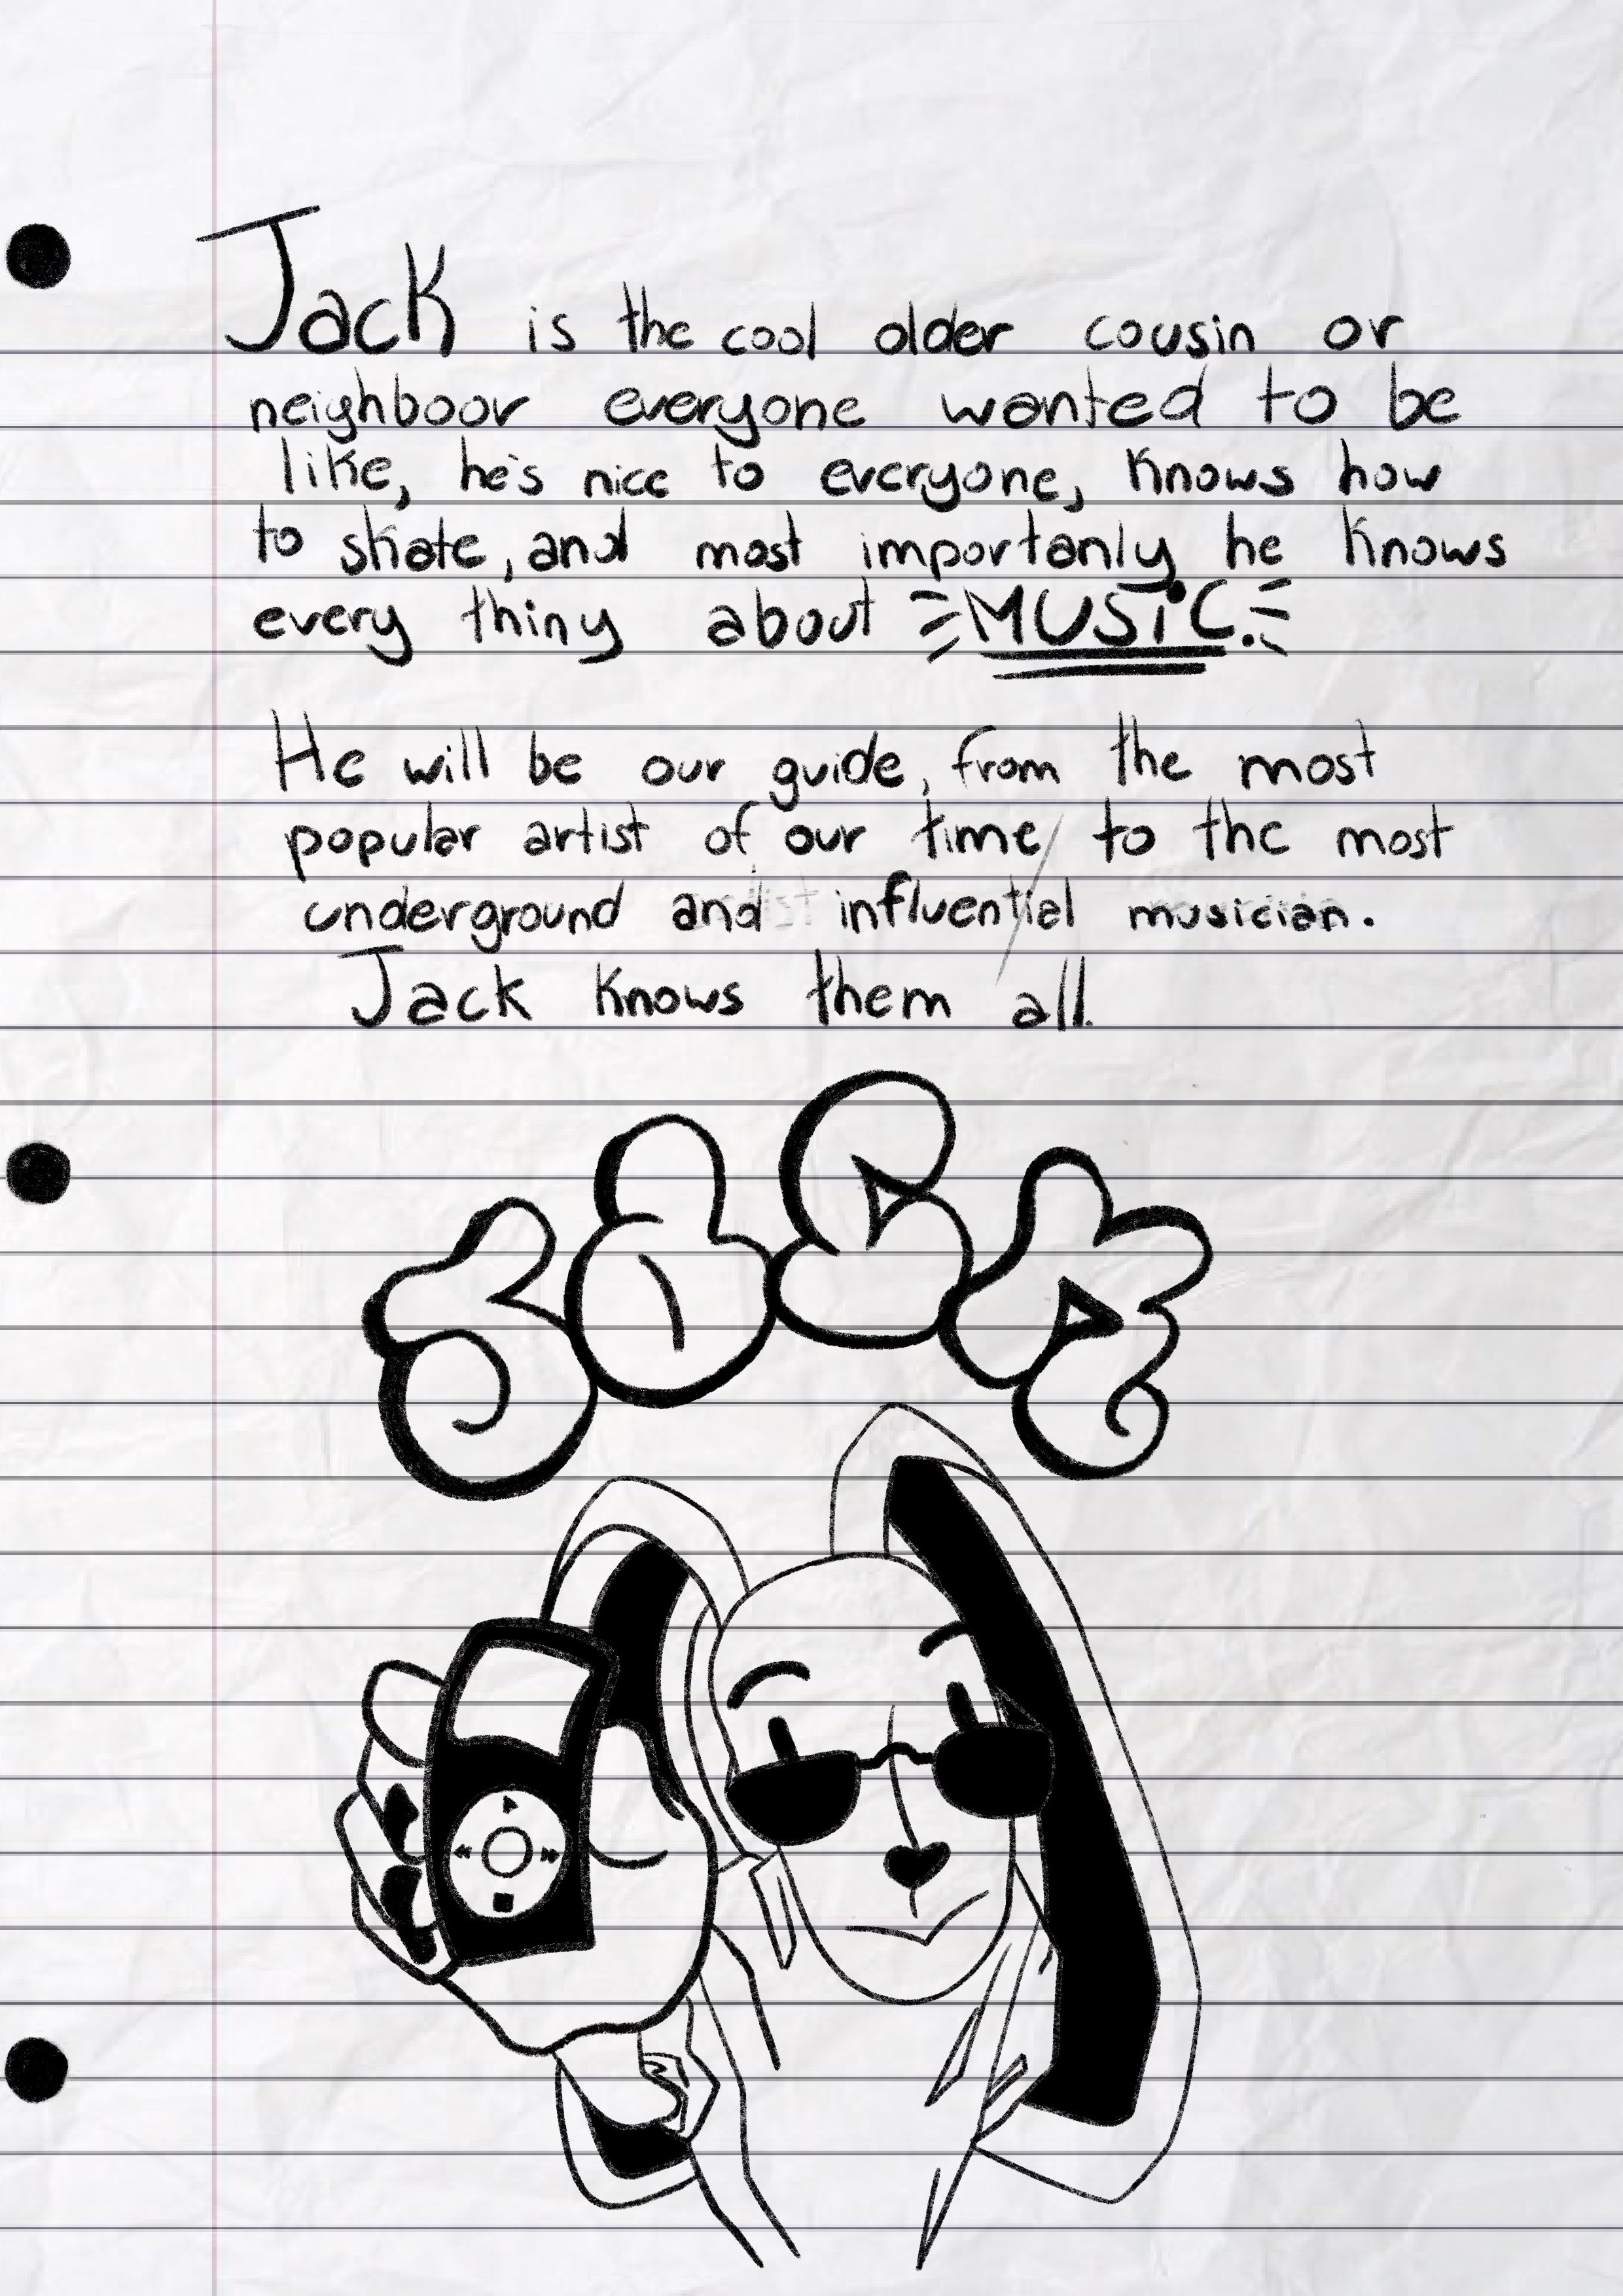 Jack is the cool older cousin or
neighboor everyone wanted to be
like, he's nice to everyone, knows how
to skate, and most importanly he knows
every thiny about MUSiC.
He will be our guide, from the most
popular artist of our time to the most
underground and influential musician.
Jack knows them all.
JACK